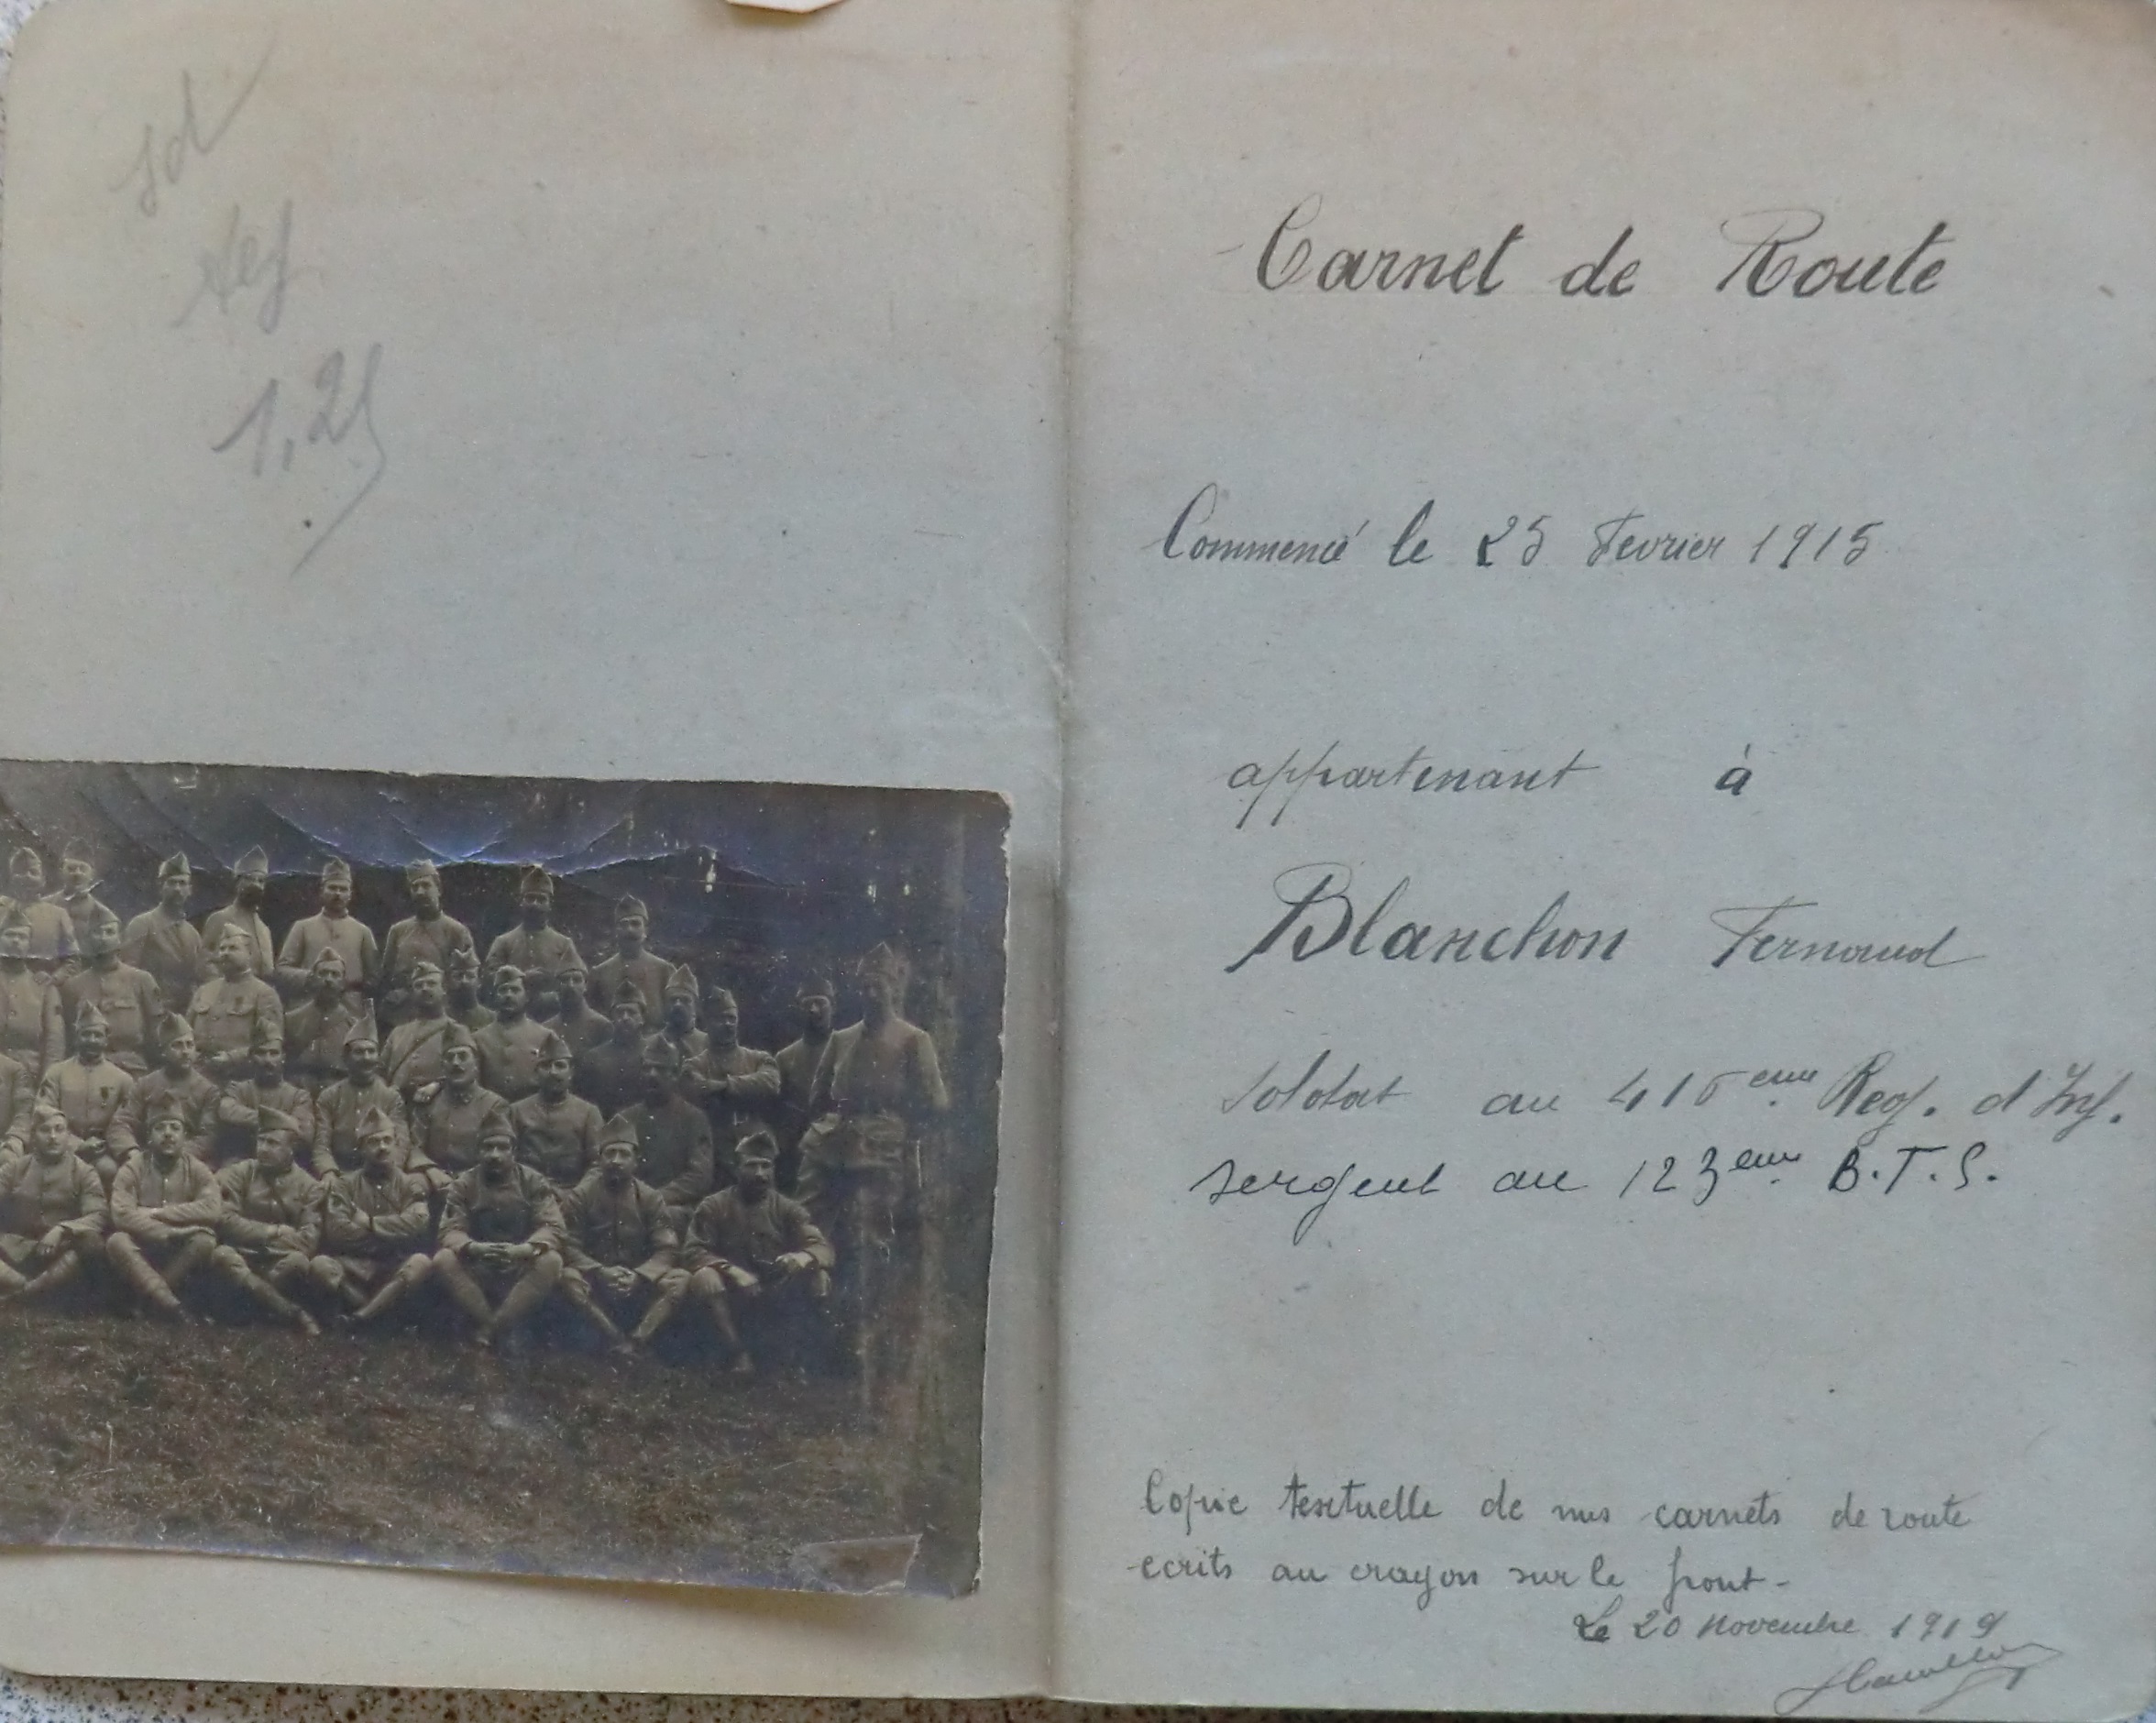 1,25
Carnet de Route
Commencé le 25 Fevrier 1915
appartenant à
Blanchon Fernand
soldat au 416eme Reg. d'Inf.
sergent au 123eme B.T.S.
Copie textuelle de mes carnets de route
ecrits au crayon sur le front-
Le 20 novembre 1919